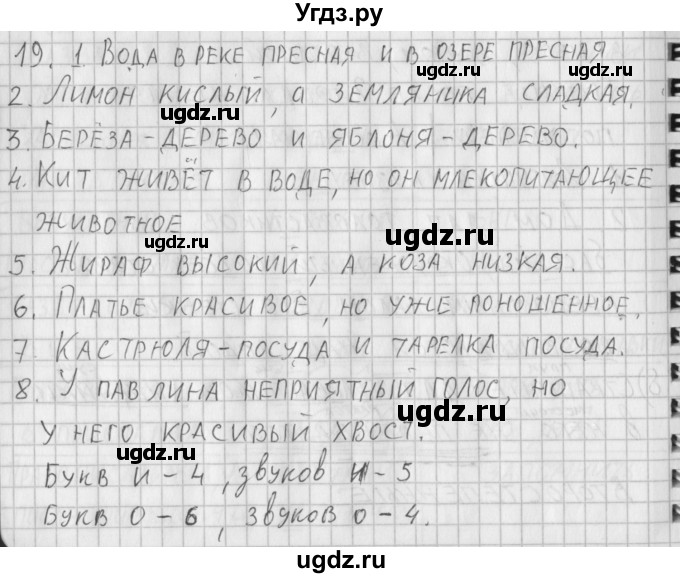 Угдз.ру
19. 1 Вода в реке пресная и в озере пресная
2. Лимон кислый, а земляника сладкая.
3. Берёза - дерево и яблоня - дерево.
4. Кит живёт в воде, но он млекопитающее
животное
5. Жираф высокий, а коза низкая.
6. Платье красивое, но уже поношенное.
7. Кастрюля - посуда и тарелка посуда.
8. У павлина неприятный голос, но
у него красивый хвост.
Букв и - 4, звуков и - 5
Букв о - 6, звуков о - 4.
ugdz.ru
ugdz.ru
ugdz.ru
ugdz.ru
ugdz.ru
ugdz.ru
ugdz.ru
ugdz.ru
ugdz.ru
ugdz.ru
ugdz.ru
ugdz.ru
ugdz.ru